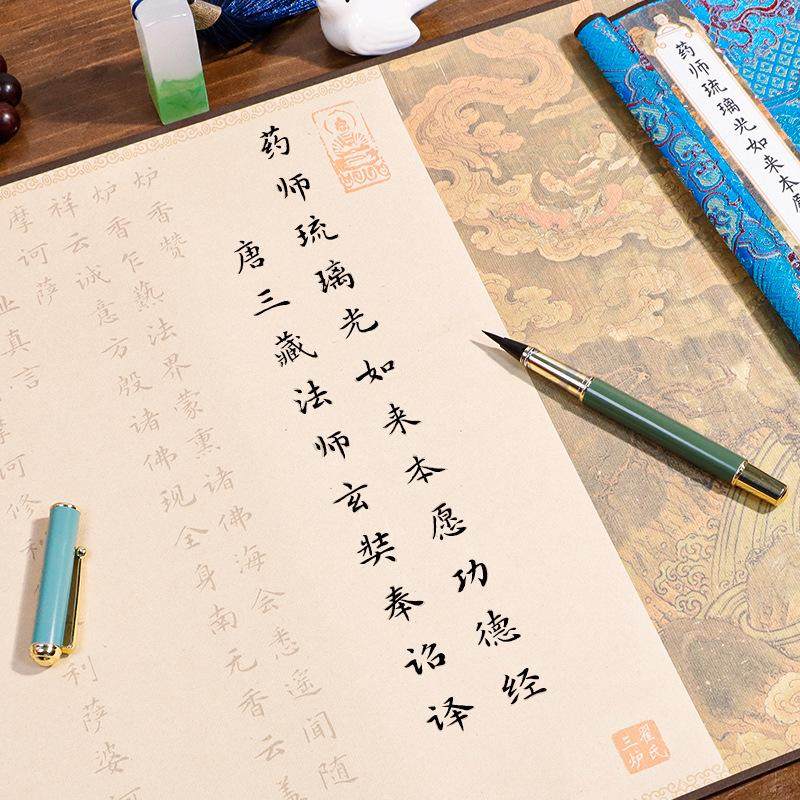 药师琉璃光如来本
药师琉璃光如来本愿功德经
唐三藏法师玄奘奉诏译
炉香赞
炉香乍爇法界蒙熏诸佛海会悉遥闻随
祥云诚意方殷诸佛现全身南无香云
摩诃萨
业真言
诃修利
利萨婆诃
翟氏
三炉